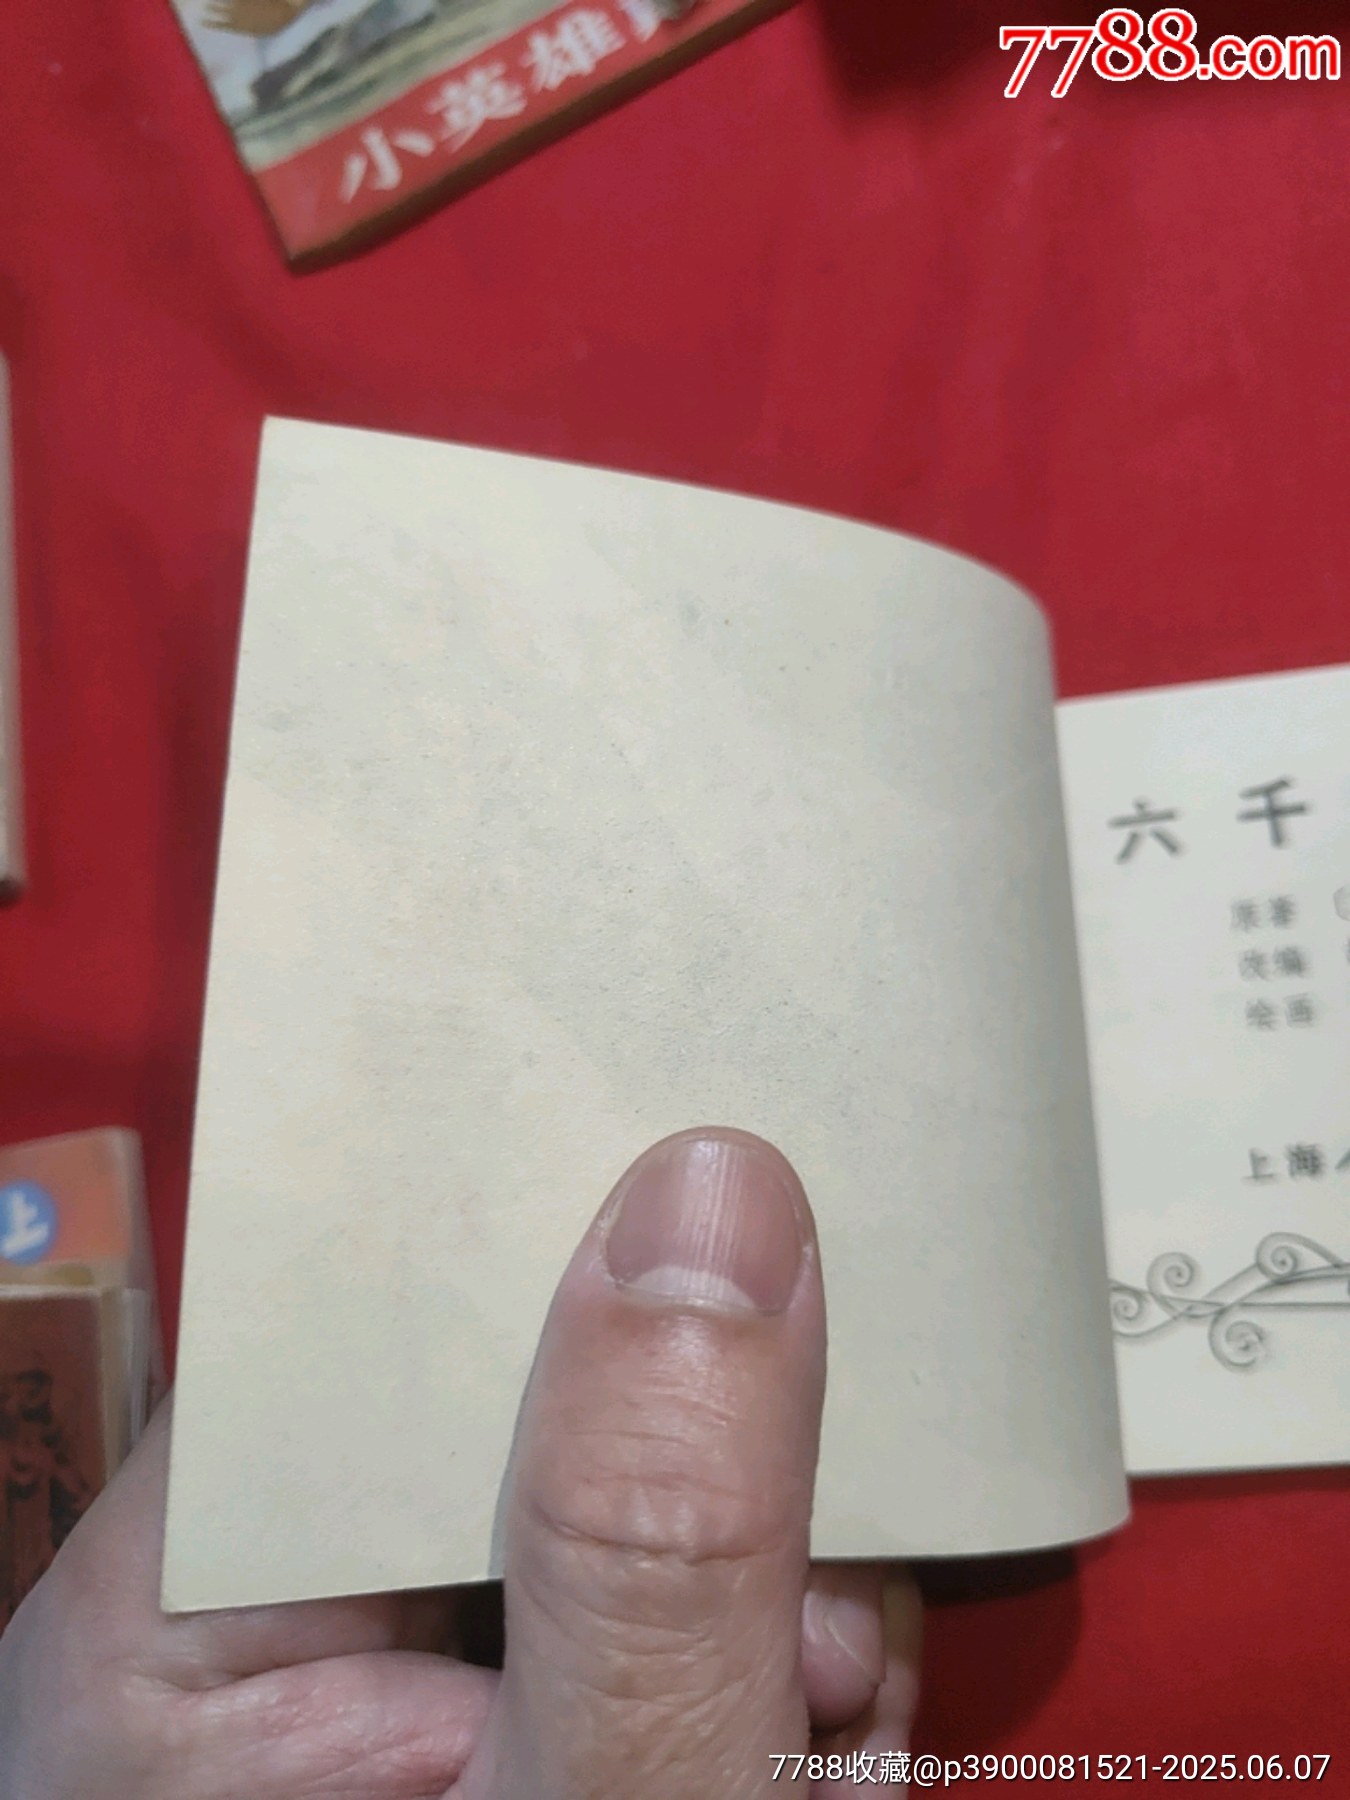 7788.com
小英雄
六千
原著
改编
绘画
上海人
上
7788收藏@p3900081521-2025.06.07